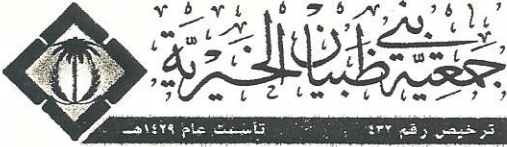 جمعية بني ظبيان الخيرية
ترخيص رقم ٤٣٢ تأسست عام ١٤٢٩هـ